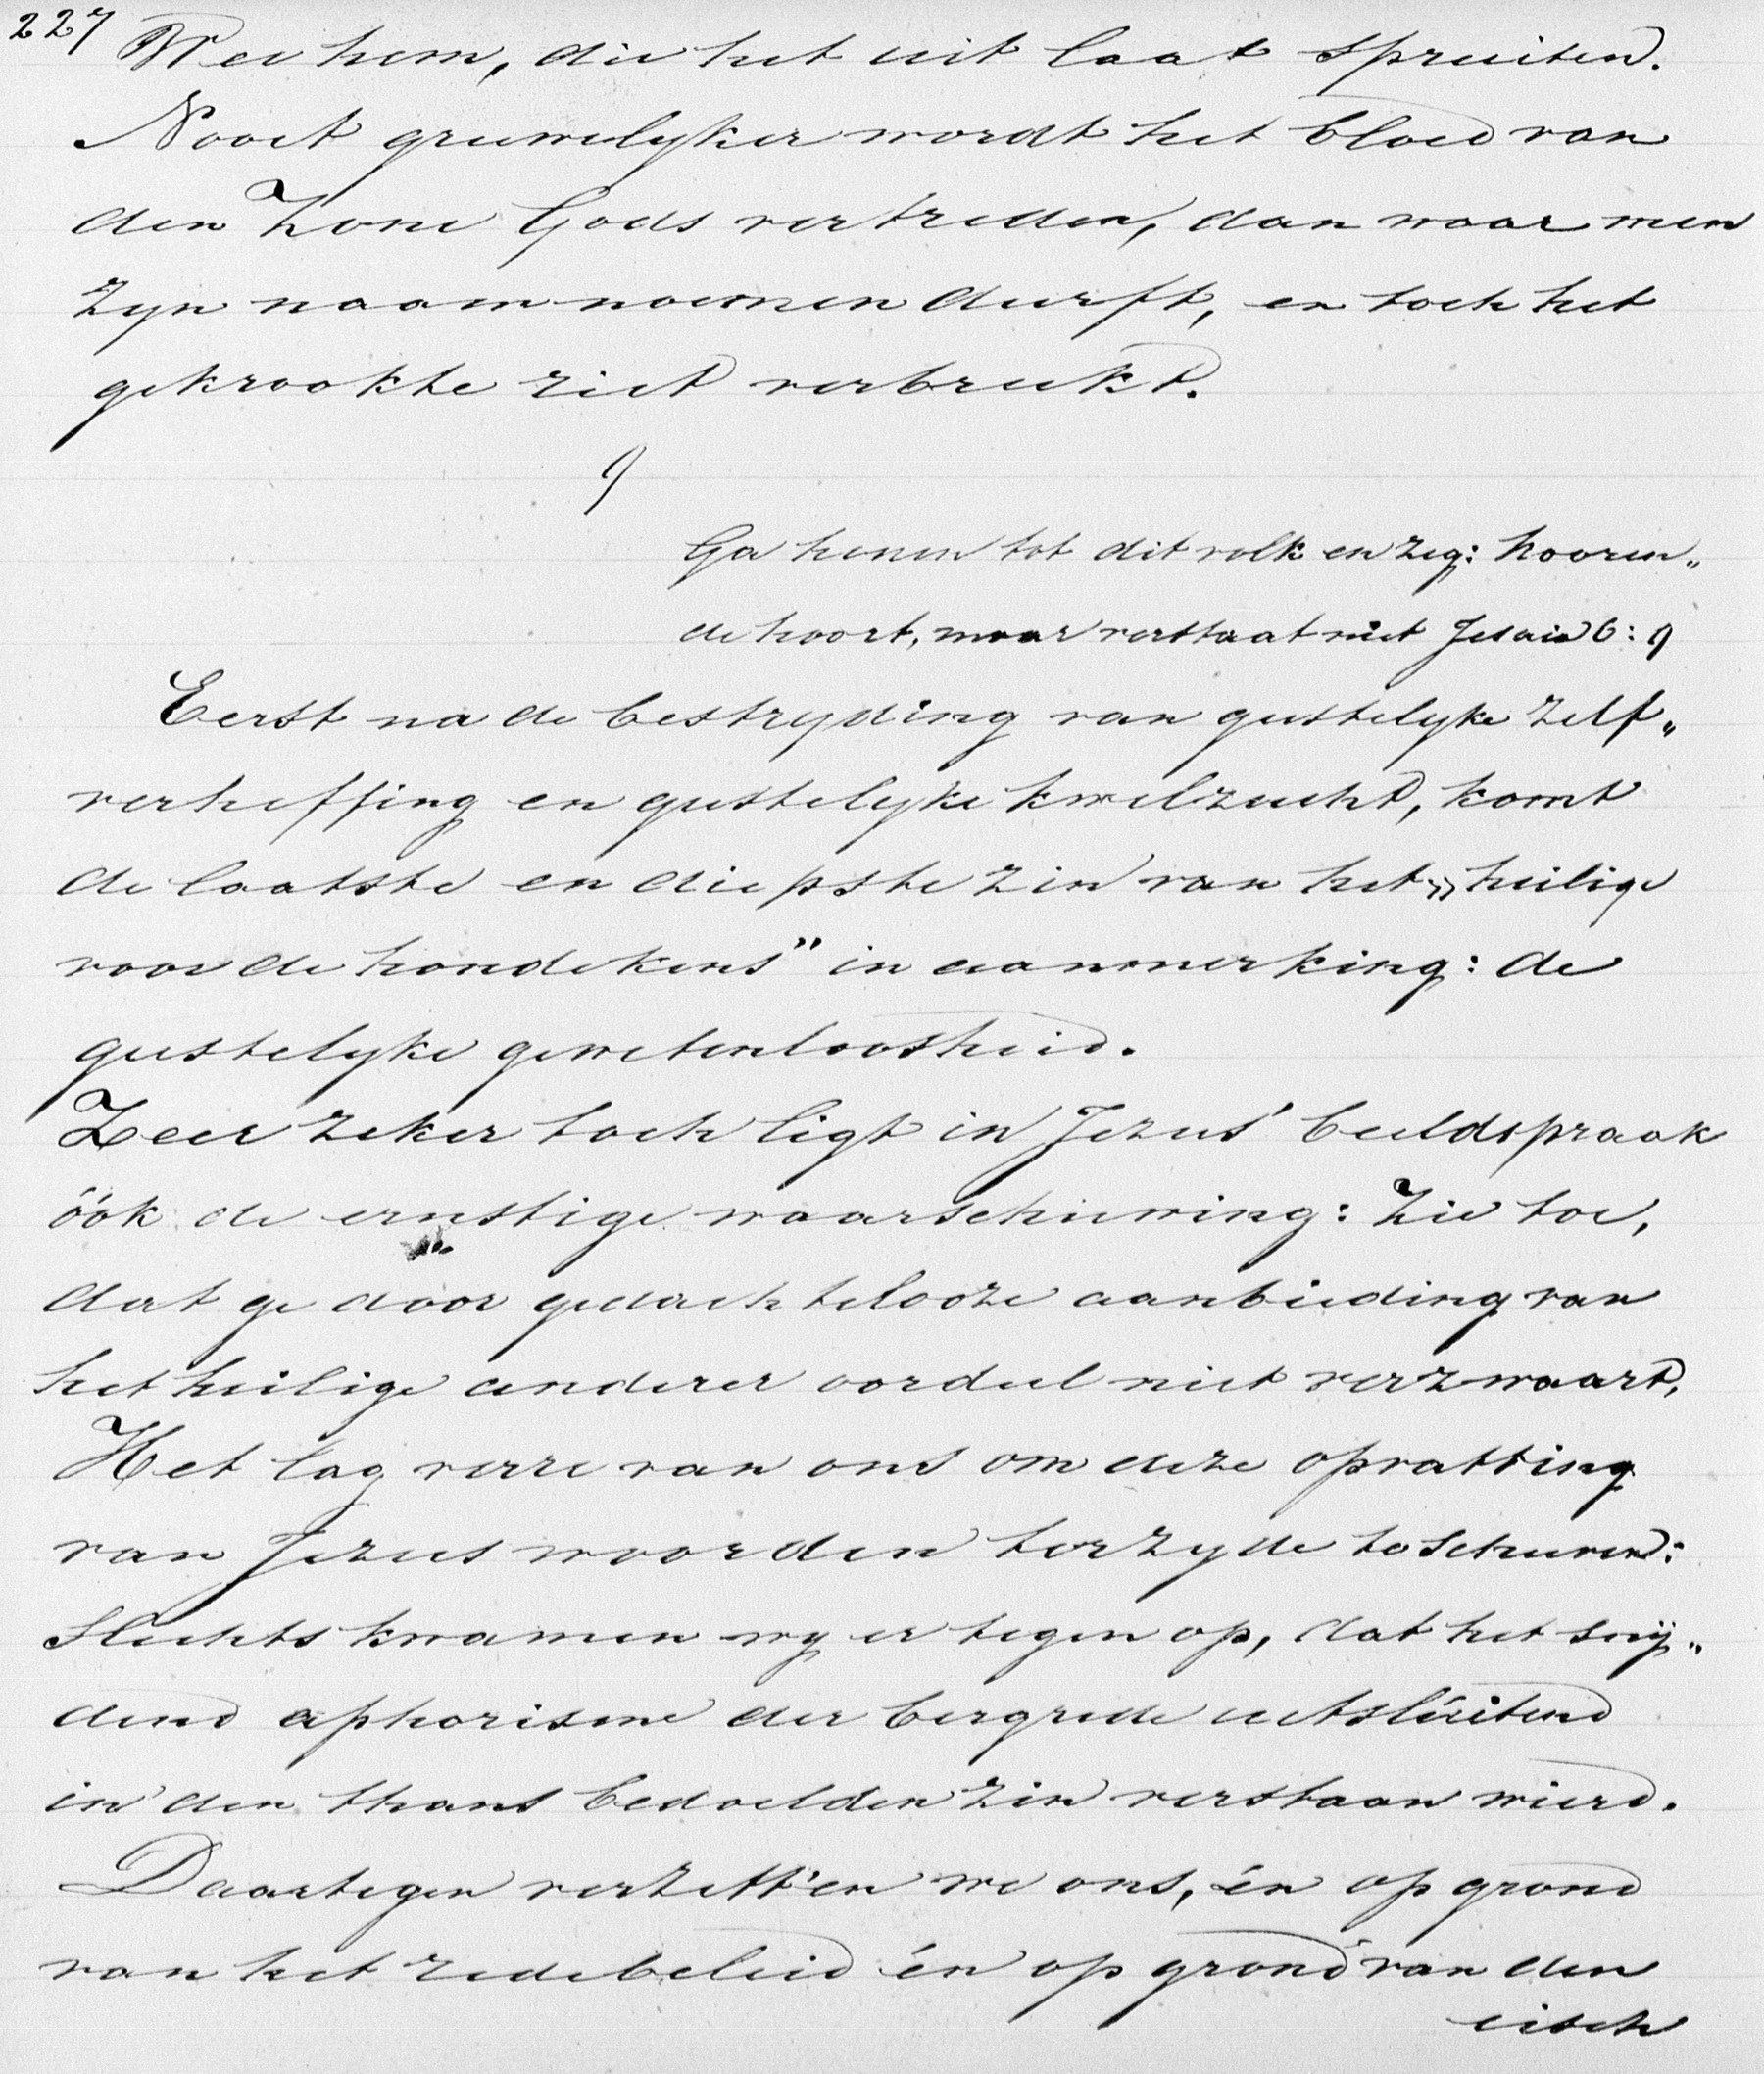 227
Wee hem, die het uit laat spruiten.
Nooit gruwelyker wordt het bloed van
den Zone Gods vertreden, dan waar men
zyn naam noemen durft, en toch het
gekrookte riet verbreekt.
9
Ga henen tot dit volk en zeg: hooren„
de hoort, maar verstaat niet Jesaia 6: 9
Eerst na de bestryding van geestelyke zelf„
verheffing en geestelyke kwelzucht, komt
de laatste en diepste zin van het „heilige
voor de hondekens” in aanmerking: de
geestelyke gewetenloosheid.
Zeer zeker toch ligt in Jezus' beeldspraak
óók de ernstige waarschuwing: Zie toe,
dat ge door gedachtelooze aanbieding van
het heilige anderer oordeel niet verzwaart.
Het lag verre van ons om deze opvatting
van Jezus woorden terzyde te schuiven:
Slechts kwamen wy er tegen op, dat het snij„
dend aphorisme der bergrede uitsluitend
in den thans bedoelden zin verstaan wierd.
Daartegen verzett'en we ons, én op grond
van het redebeleid én op grond van den
eisch